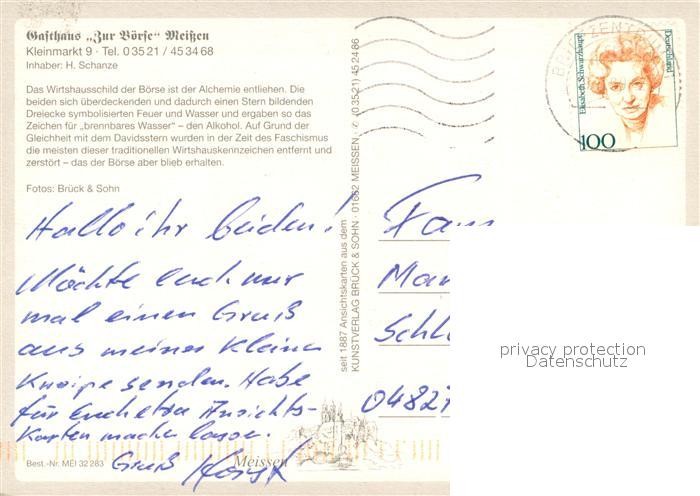 Gasthaus „Zur Börse“ Meißen
Kleinmarkt 9 · Tel. 0 35 21 / 45 34 68
Inhaber: H. Schanze
Das Wirtshausschild der Börse ist der Alchemie entliehen. Die
beiden sich überdeckenden und dadurch einen Stern bildenden
Dreiecke symbolisierten Feuer und Wasser und ergaben so das
Zeichen für „brennbares Wasser“ – den Alkohol. Auf Grund der
Gleichheit mit dem Davidsstern wurden in der Zeit des Faschismus
die meisten dieser traditionellen Wirtshauskennzeichen entfernt und
zerstört – das der Börse aber blieb erhalten.
Fotos: Brück & Sohn
Hallo ihr beiden!
Möchte Euch nur
mal einen Gruß
aus meiner kleinen
Kneipe senden. Habe
für Euch etwa Ansichts-
karten machen lassen.
Gruß
Best.-Nr. MEI 32 283
Meissen
seit 1887 Ansichtskarten aus dem
KUNSTVERLAG BRÜCK & SOHN · 01662 MEISSEN · ✆ (0 35 21) 45 24 86
BRIEFZENTRUM
Elisabeth Schwarzhaupt
Deutschland
100
Fam
Mar
Schl
0482
privacy protection
Datenschutz